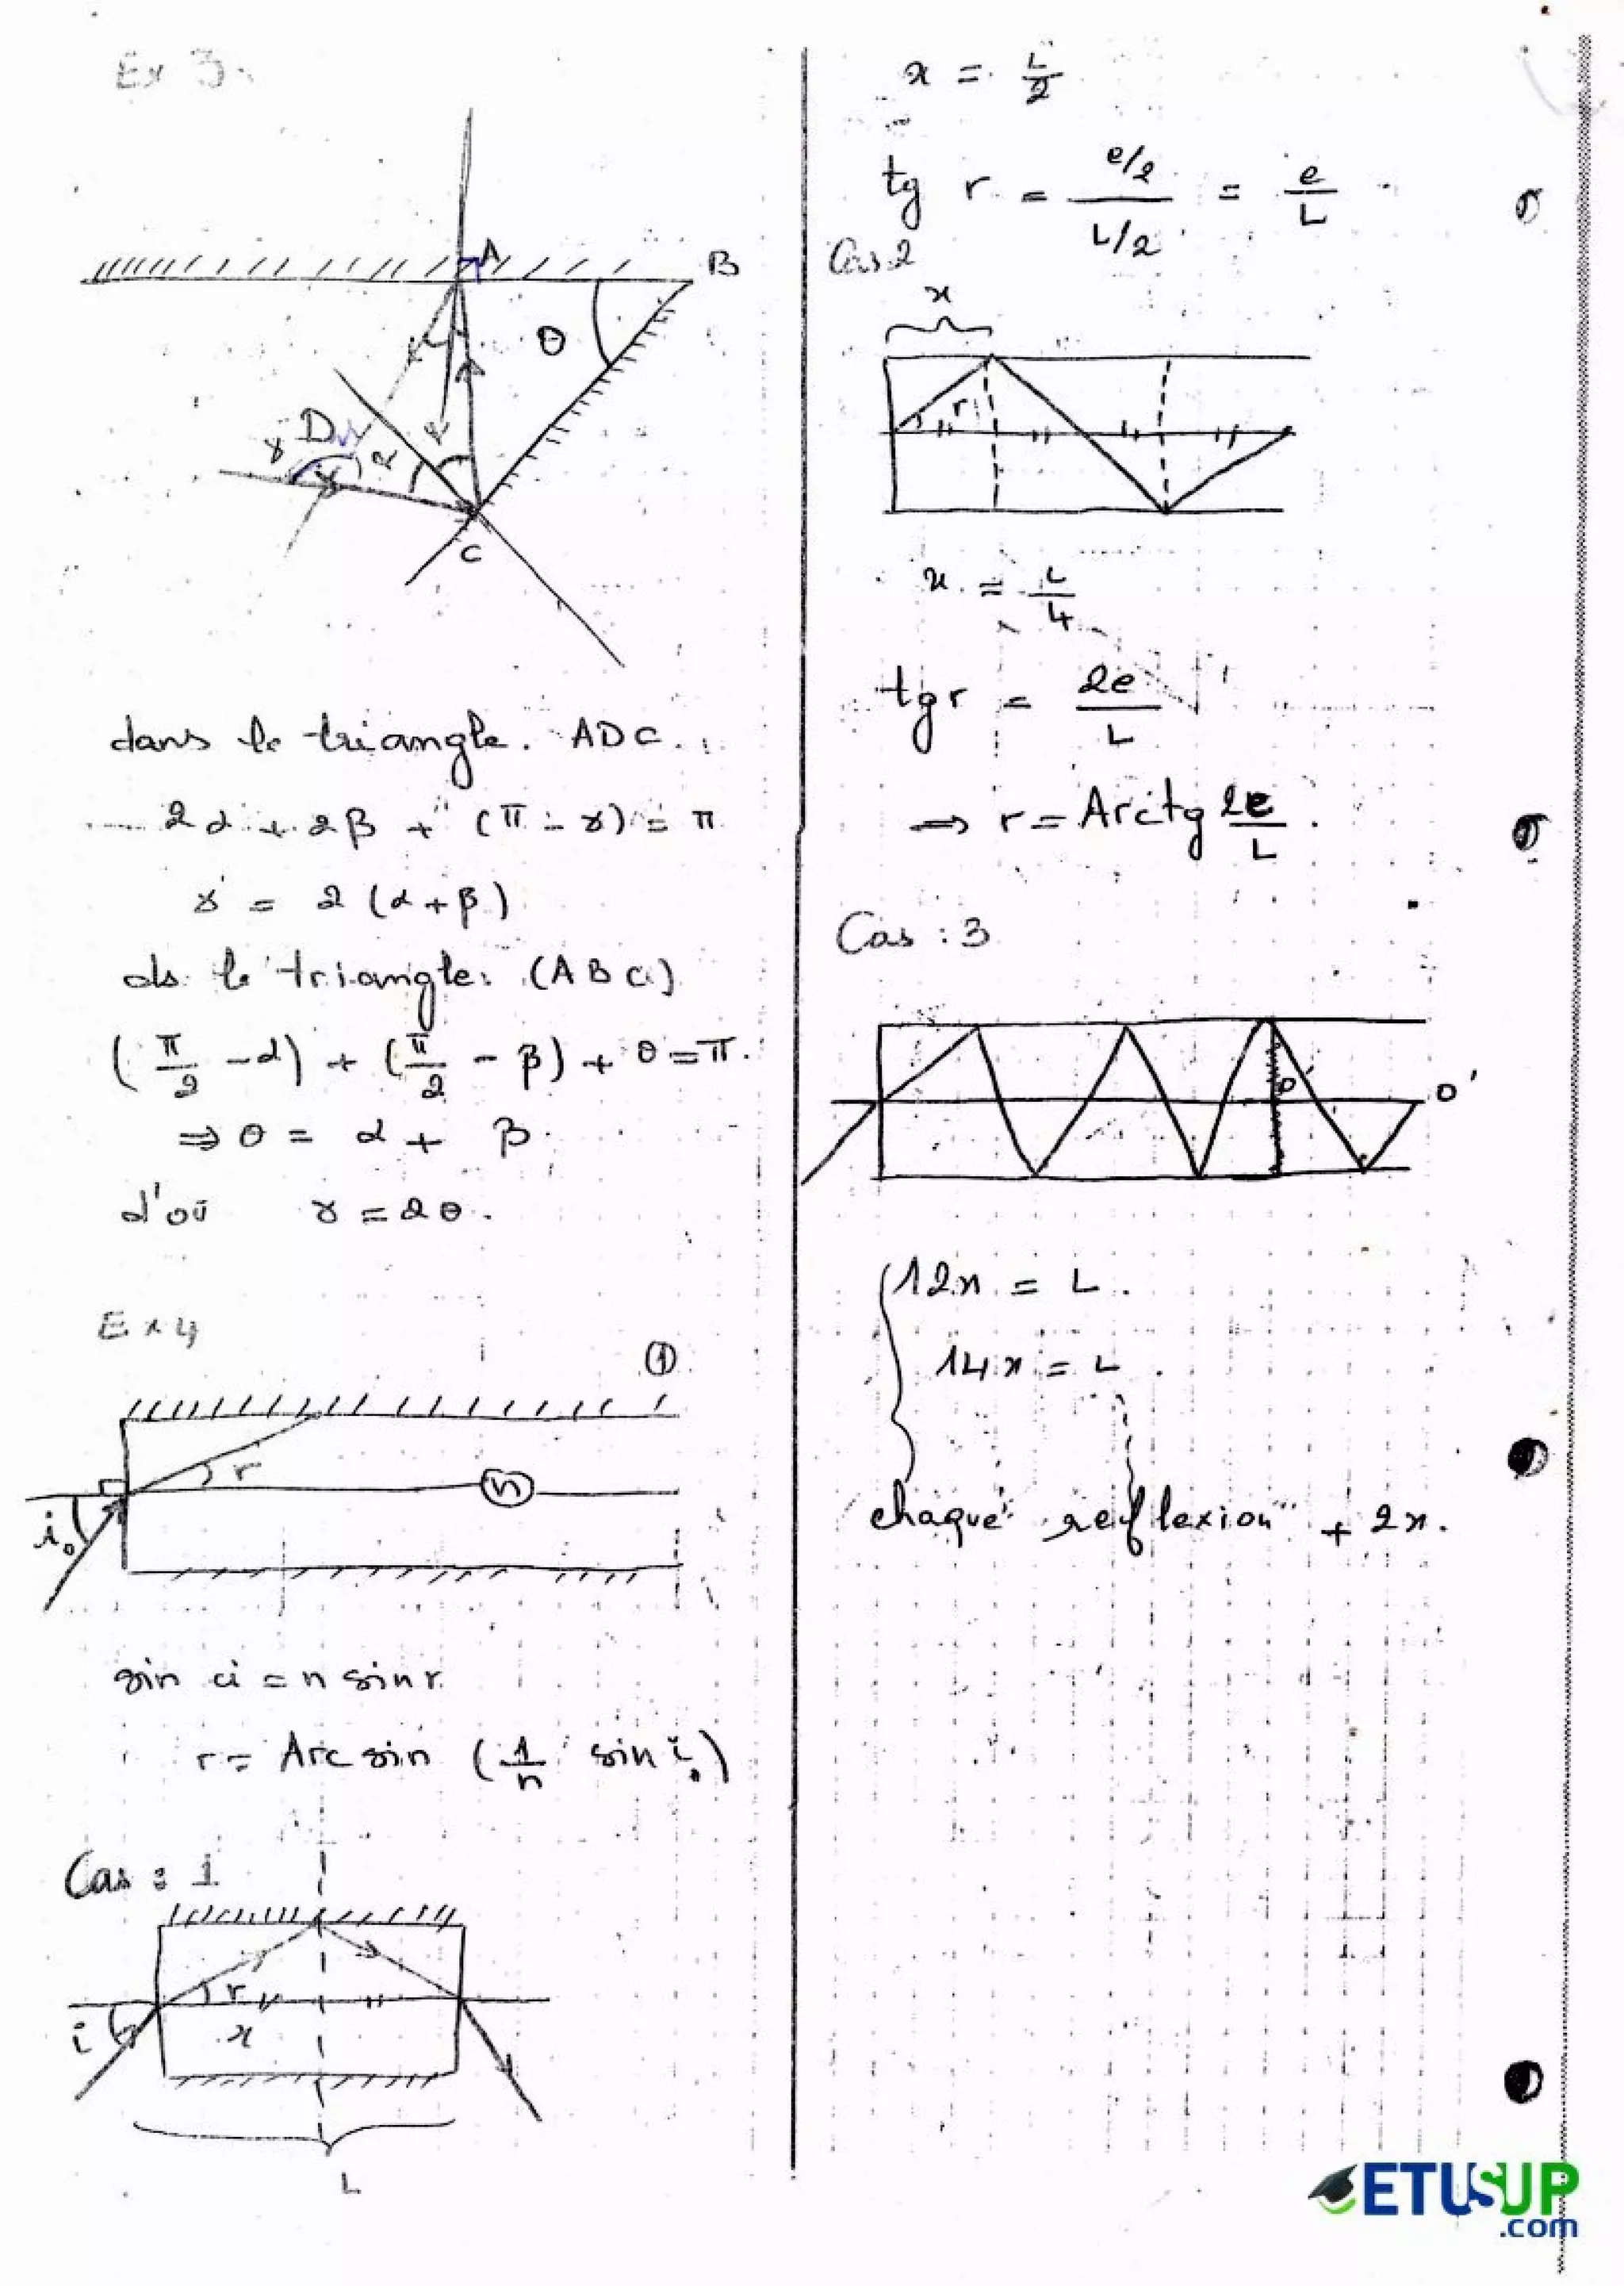 Ex 3.
A
B
θ
D
γ
α
C
dans le triangle. ADC.
2α + 2β + (π - γ) = π
γ = 2 (α + β)
ds le triangle: (ABC)
(π/2 - α) + (π/2 - β) + θ = π.
⇒ θ = α + β
d'où γ = 2θ.
Ex 4
1
r
n
i₀
sin i = n sin r
r = Arc sin (1/n sin i₀)
Cas : 1
i
r
x
L
x = L/2
tg r = (e/2)/(L/2) = e/L
Cas 2
x
r
x = L/4
tg r = 2e/L
⇒ r = Arctg 2e/L.
Cas : 3
O'
12x = L.
14x = L.
chaque reflexion + 2x.
ETUSUP
.com